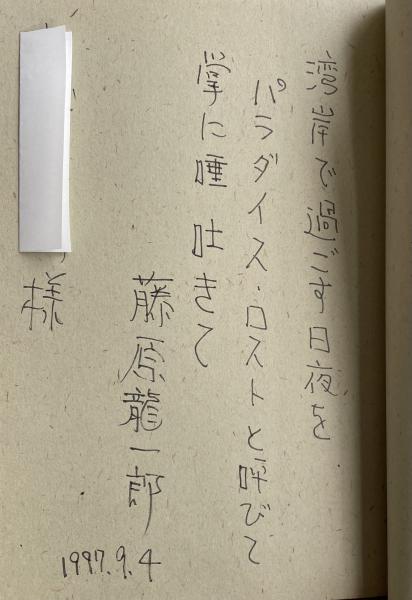 湾岸で過ごす日夜を
パラダイス・ロストと呼びて
掌に唾吐きて
藤原龍一郎
様
1997.9.4